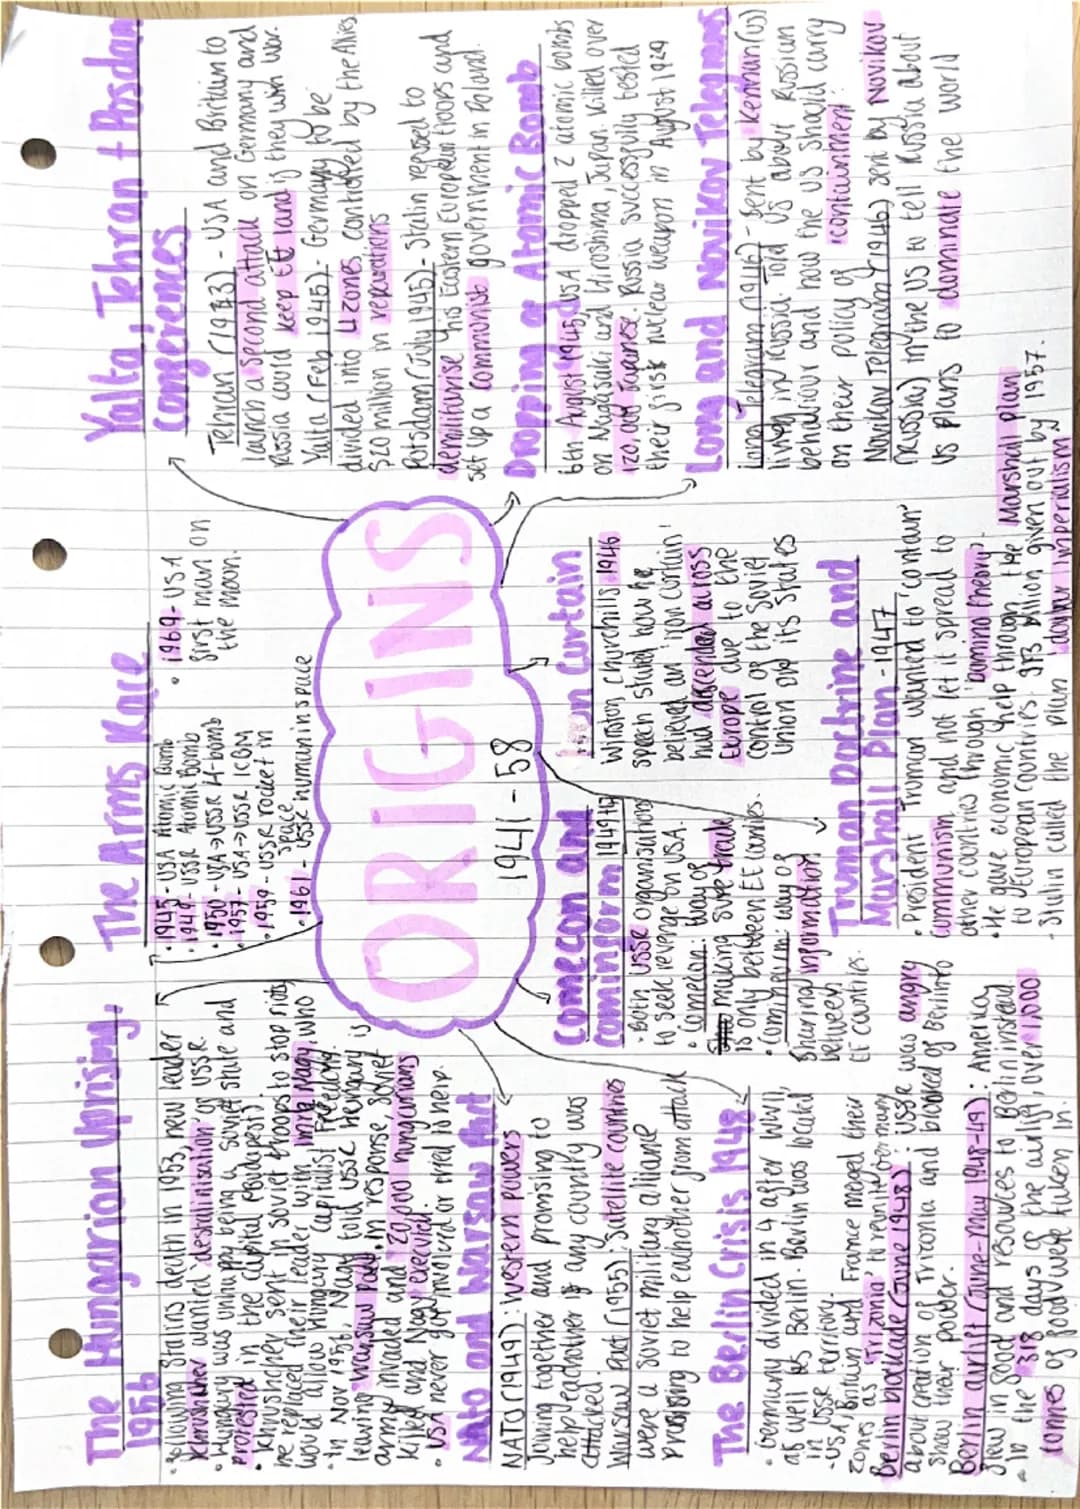 The Hungarian Uprising,
1956
• Following Stalins death in 1953, new leader
Khrushchev wanted 'destalinisation' of USSR
• Hungary was unhappy being a soviet state and
protested in the capital (Budapest).
• Khrushchev sent in soviet troops to stop riots
he replaced their leader with Imre Nagy, who
would allow Hungary capitalist freedom.
• In Nov 1956, Nagy told USSR Hungary is
leaving Warsaw Pact, in response, Soviet
army invaded and 20,000 hungarians
killed and Nagy executed.
• USA never got involved or tried to help.
The Arms Race
• 1945 - USA Atomic Bomb
• 1949 - USSR Atomic Bomb
• 1950 - USA → USSR H-bomb
• 1957 - USA → USSR ICBM
• 1959 - USSR rocket in
space
• 1961 - USSR human in space
• 1969 - USA
first man on
the moon.
Yalta, Tehran + Posdam
Conferences
Tehran (1943) - USA and Britain to
launch a second attack on Germany and
Russia could keep EE land if they win war.
Yalta (Feb 1945) - Germany to be
divided into 4 zones controlled by the Allies
$20 million in reparations
Potsdam (July 1945) - Stalin refused to
demilitarise his Eastern European troops and
set up a communist government in Poland.
ORIGINS
1941 - 58
Dropping of Atomic Bomb
6th August 1945, USA dropped 2 atomic bombs
on Nagasaki and Hiroshima, Japan. killed over
120,000 Japanese. Russia successfully tested
their first nuclear weapon in August 1949
Long and Novikov Telegrams
Long Telegram (1946) - Sent by Kennan (US)
living in Russia. Told US about Russian
behaviour and how the US should carry
on their policy of 'containment'
Novikov Telegram (1946) sent by Novikov
(Russia) in the US to tell Russia about
US plans to dominate the world
Iron Curtain
Winston Churchils 1946
speech stated how he
believed an 'iron curtain'
had descended across
Europe due to the
control of the Soviet
Union and its States
Truman Doctrine and
Marshall Plan - 1947
• President Truman wanted to 'contain'
communism and not let it spread to
other contries through 'domino theory'.
• He gave economic help through the Marshall Plan
to European countries. $13 billion given out by 1957.
- Stalin called the plan 'dollar imperialism'
Comecon and
Cominform 1949/47
• Both USSR organisations
to seek revenge on USA.
• Comecon: way of
making sure trade
is only between EE countries.
• Cominform: way of
sharing information
between
EE countries.
Nato and Warsaw Pact
NATO (1949): Western powers
joining together and promising to
help eachother if any country was
attacked.
Warsaw Pact (1955): Satellite countries
were a Soviet military alliance
promising to help eachother from attack
The Berlin Crisis 1948
• Germany divided in 4 after WWII,
as well as Berlin. Berlin was located
in USSR territory.
- USA, Britain and France merged their
zones as 'Trizonia' to reunite Germany
Berlin blockade (June 1948): USSR was angry
about creation of Trizonia and blocked of Berlin to
show their power.
Berlin airlift (June-May 1948-49): America
flew in food and resources to Berlin instead.
• In the 318 days of the airlift, over 1,000
tonnes of food were taken in.